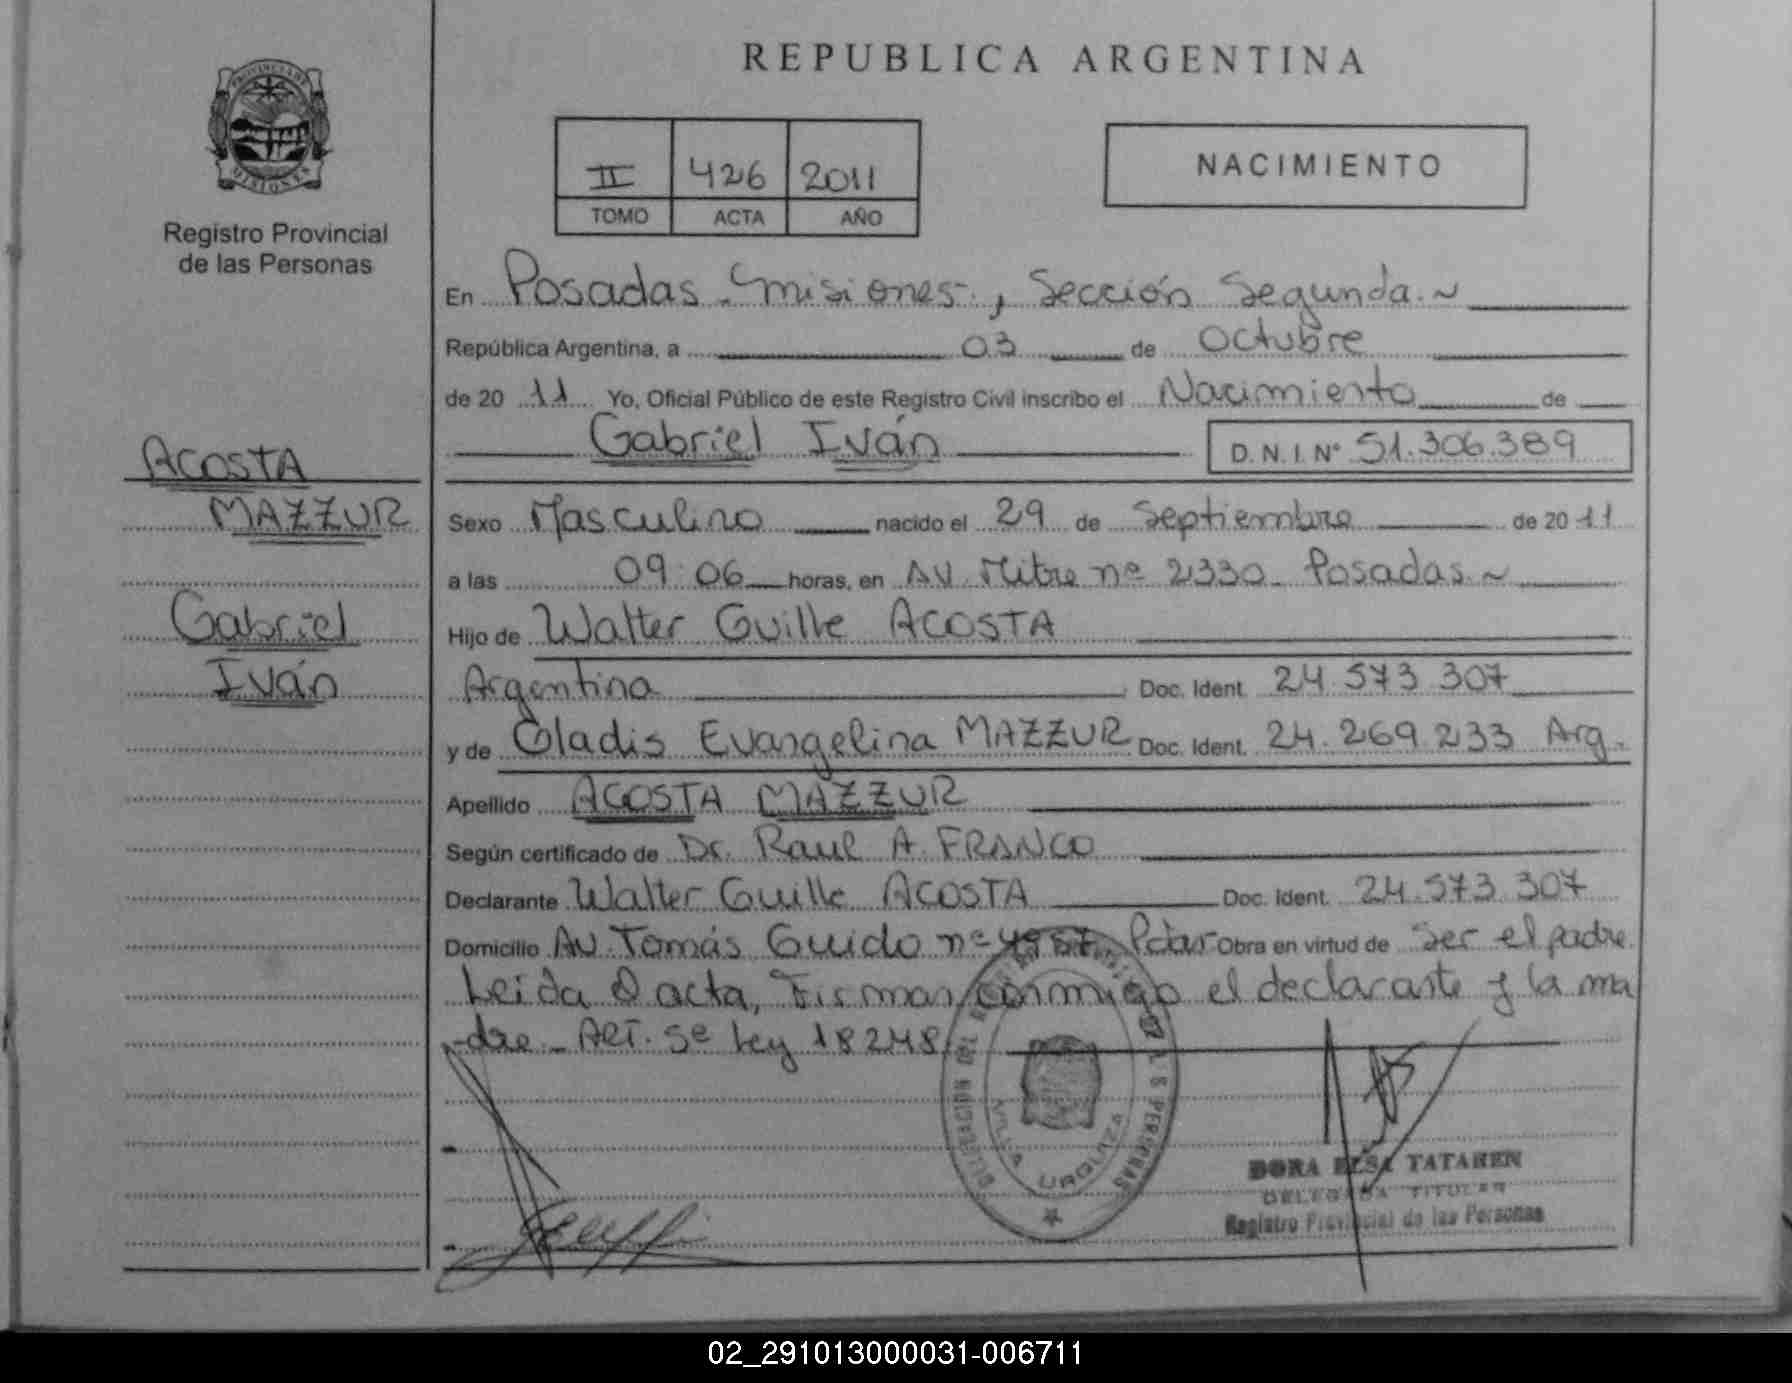 REPUBLICA ARGENTINA
PROVINCIA DE
MISIONES
Registro Provincial
de las Personas
II 426 2011
TOMO ACTA AÑO
NACIMIENTO
En Posadas - Misiones -, Sección Segunda. ~
República Argentina, a 03 de Octubre
de 20 11 Yo, Oficial Público de este Registro Civil inscribo el Nacimiento de
Gabriel Iván D. N. I. Nº 51.306.389
ACOSTA
MAZZUR
Gabriel
Iván
Sexo Masculino nacido el 29 de Septiembre de 20 11
a las 09:06 horas, en AV. Mitre nº 2330 - Posadas ~
Hijo de Walter Guille ACOSTA
Argentina Doc. Ident. 24.573.307
y de Gladis Evangelina MAZZUR Doc. Ident. 24.269.233 Arg.
Apellido ACOSTA MAZZUR
Según certificado de Dr. Raul A. FRANCO
Declarante Walter Guille ACOSTA Doc. Ident. 24.573.307
Domicilio AV. Tomás Guido nº Obra en virtud de ser el padre.
Leida acta, Firman conmigo el declarante y la ma
-dre - ART. 5º Ley 18248
VILLA URQUIZA
DORA ELSA TATAREN
DELEGADA TITULAR
Registro Provincial de las Personas
02_291013000031-006711